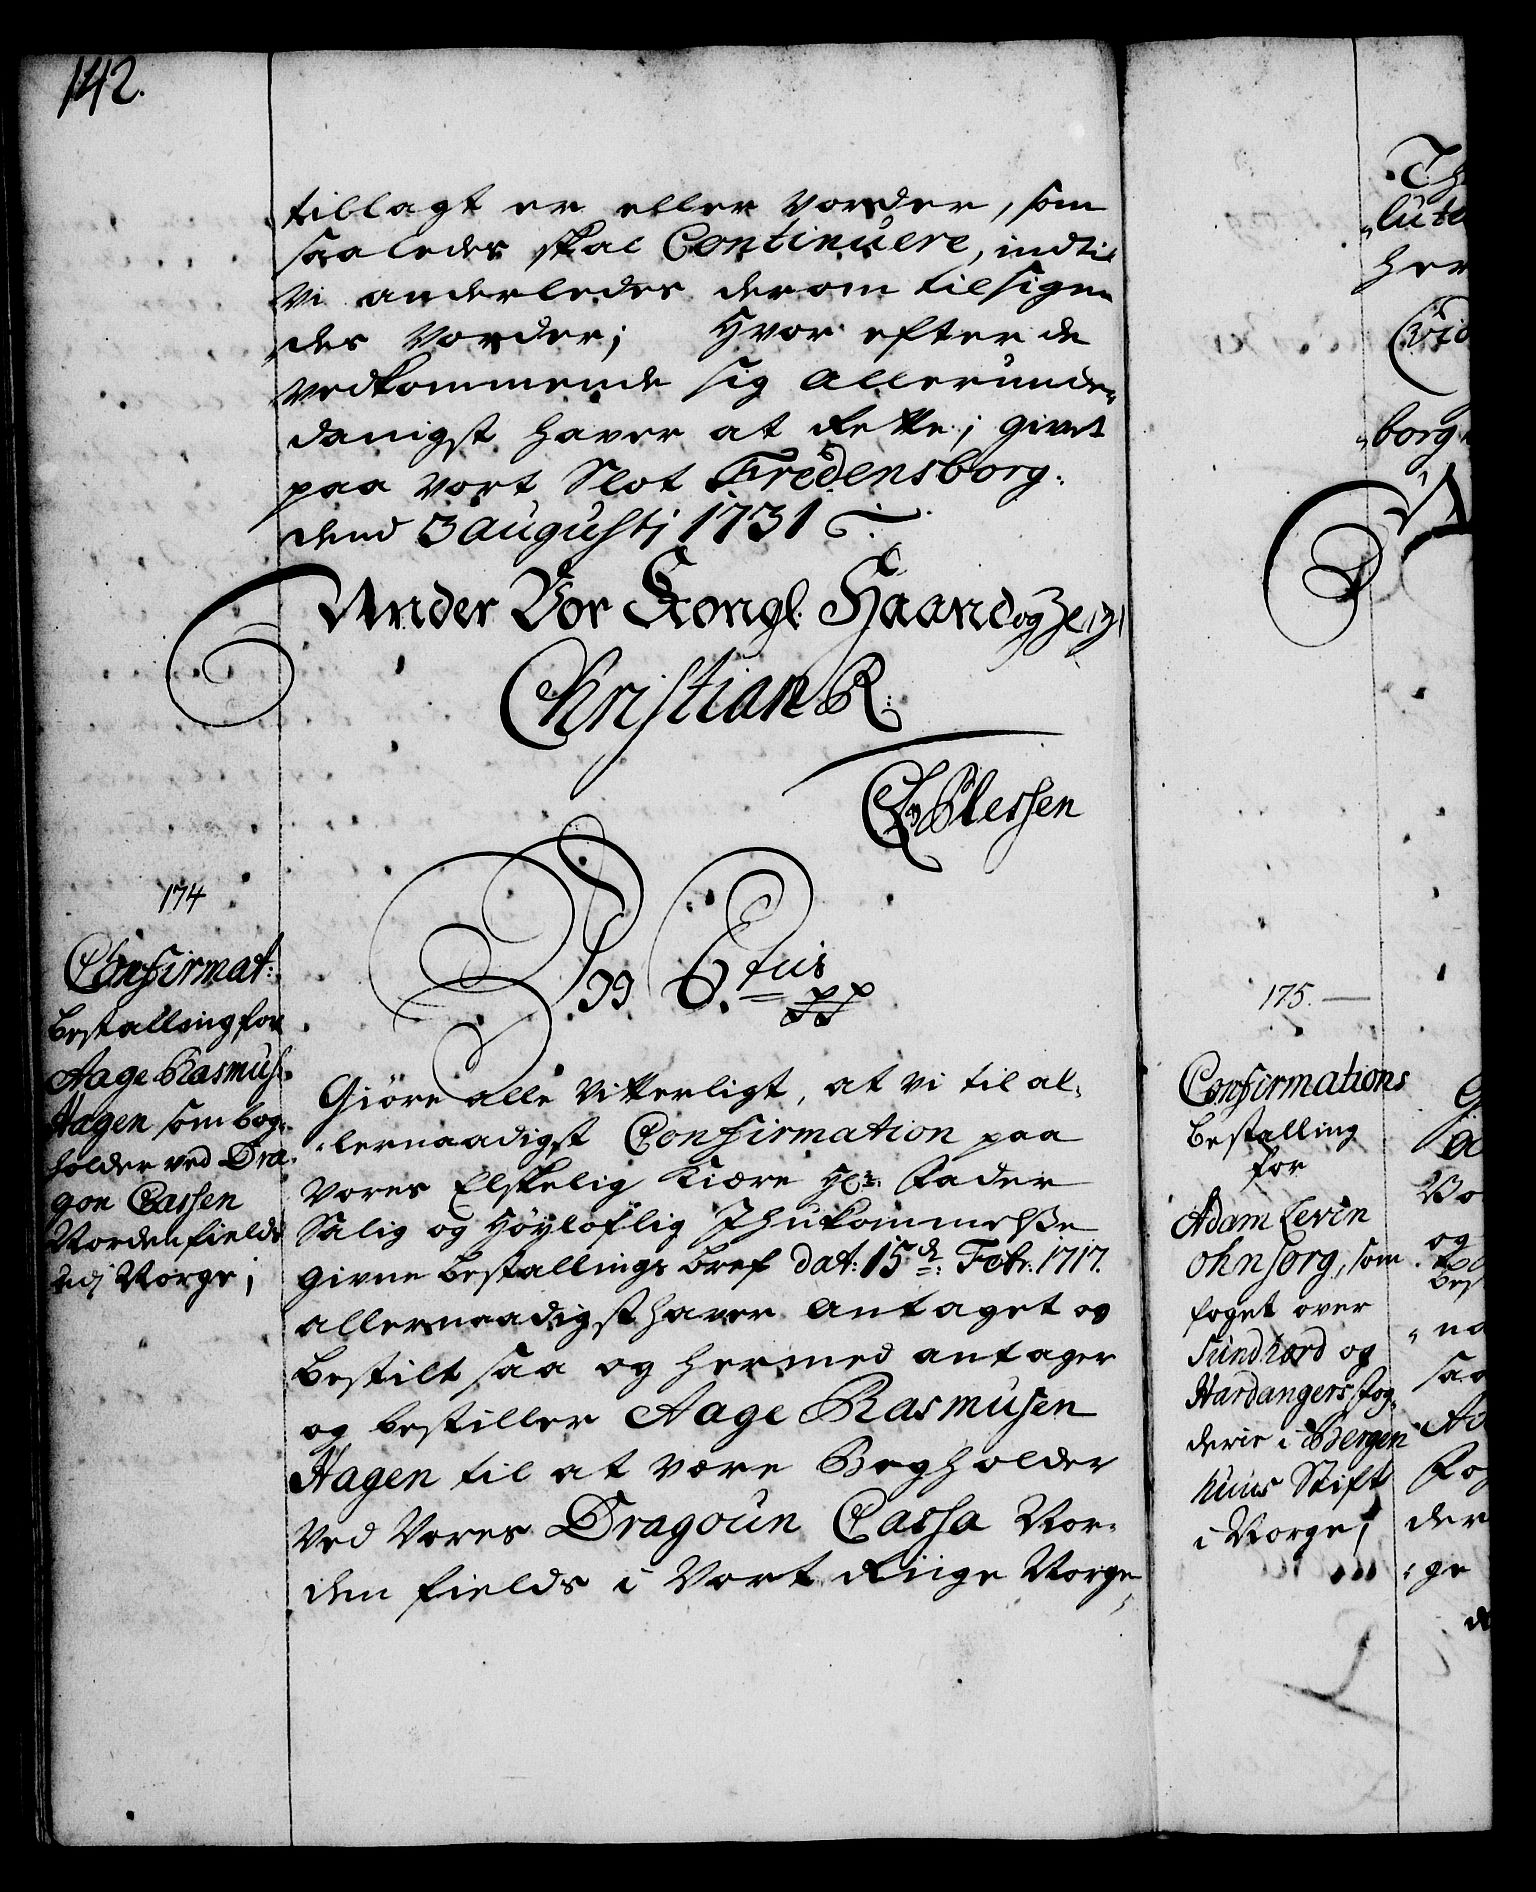 142.
tillagt er eller vorder, som
saaledes skal Continuere, indtil
vi anderledes derom tilsigen-
des vorder; Hvor efter de
vedkommende sig allerunder-
danigst haver at rette; givet
paa vort Slot Fredensborg.
dend 3 augustj 1731
Under Vor Kongl. Haand og
Christian R:
Plessen
174
Confirmat:
bestalling for
Aage Rasmus:
Hagen som bog-
holder ved Dra-
gon Cassen
Nordenfields
udj Norge;
6. tus
pp
Giöre alle vitterligt, at vi til al-
lernaadigst Confirmation paa
Vores Elskelig Kiære Hr: Fader
Salig og Höyloflig Ihukommelse
givne bestallings bref dat: 15de: Febr: 1717.
allernaadigst haver antaget og
bestilt saa og hermed antager
og bestiller Aage Rasmusen
Hagen til at være Bogholder
ved Vores Dragoun Cassa Nor-
den fields i Vort Riige Norge,
175.
Confirmations
bestalling
for
Adam Levin
ohnsorg, som
foget over
Sundhord og
Hardangers fog-
derie i Bergen
huus Stift
i Norge;
lute
her
borg
Bo
og
best
na
saa
Ad
Fog
der
ge